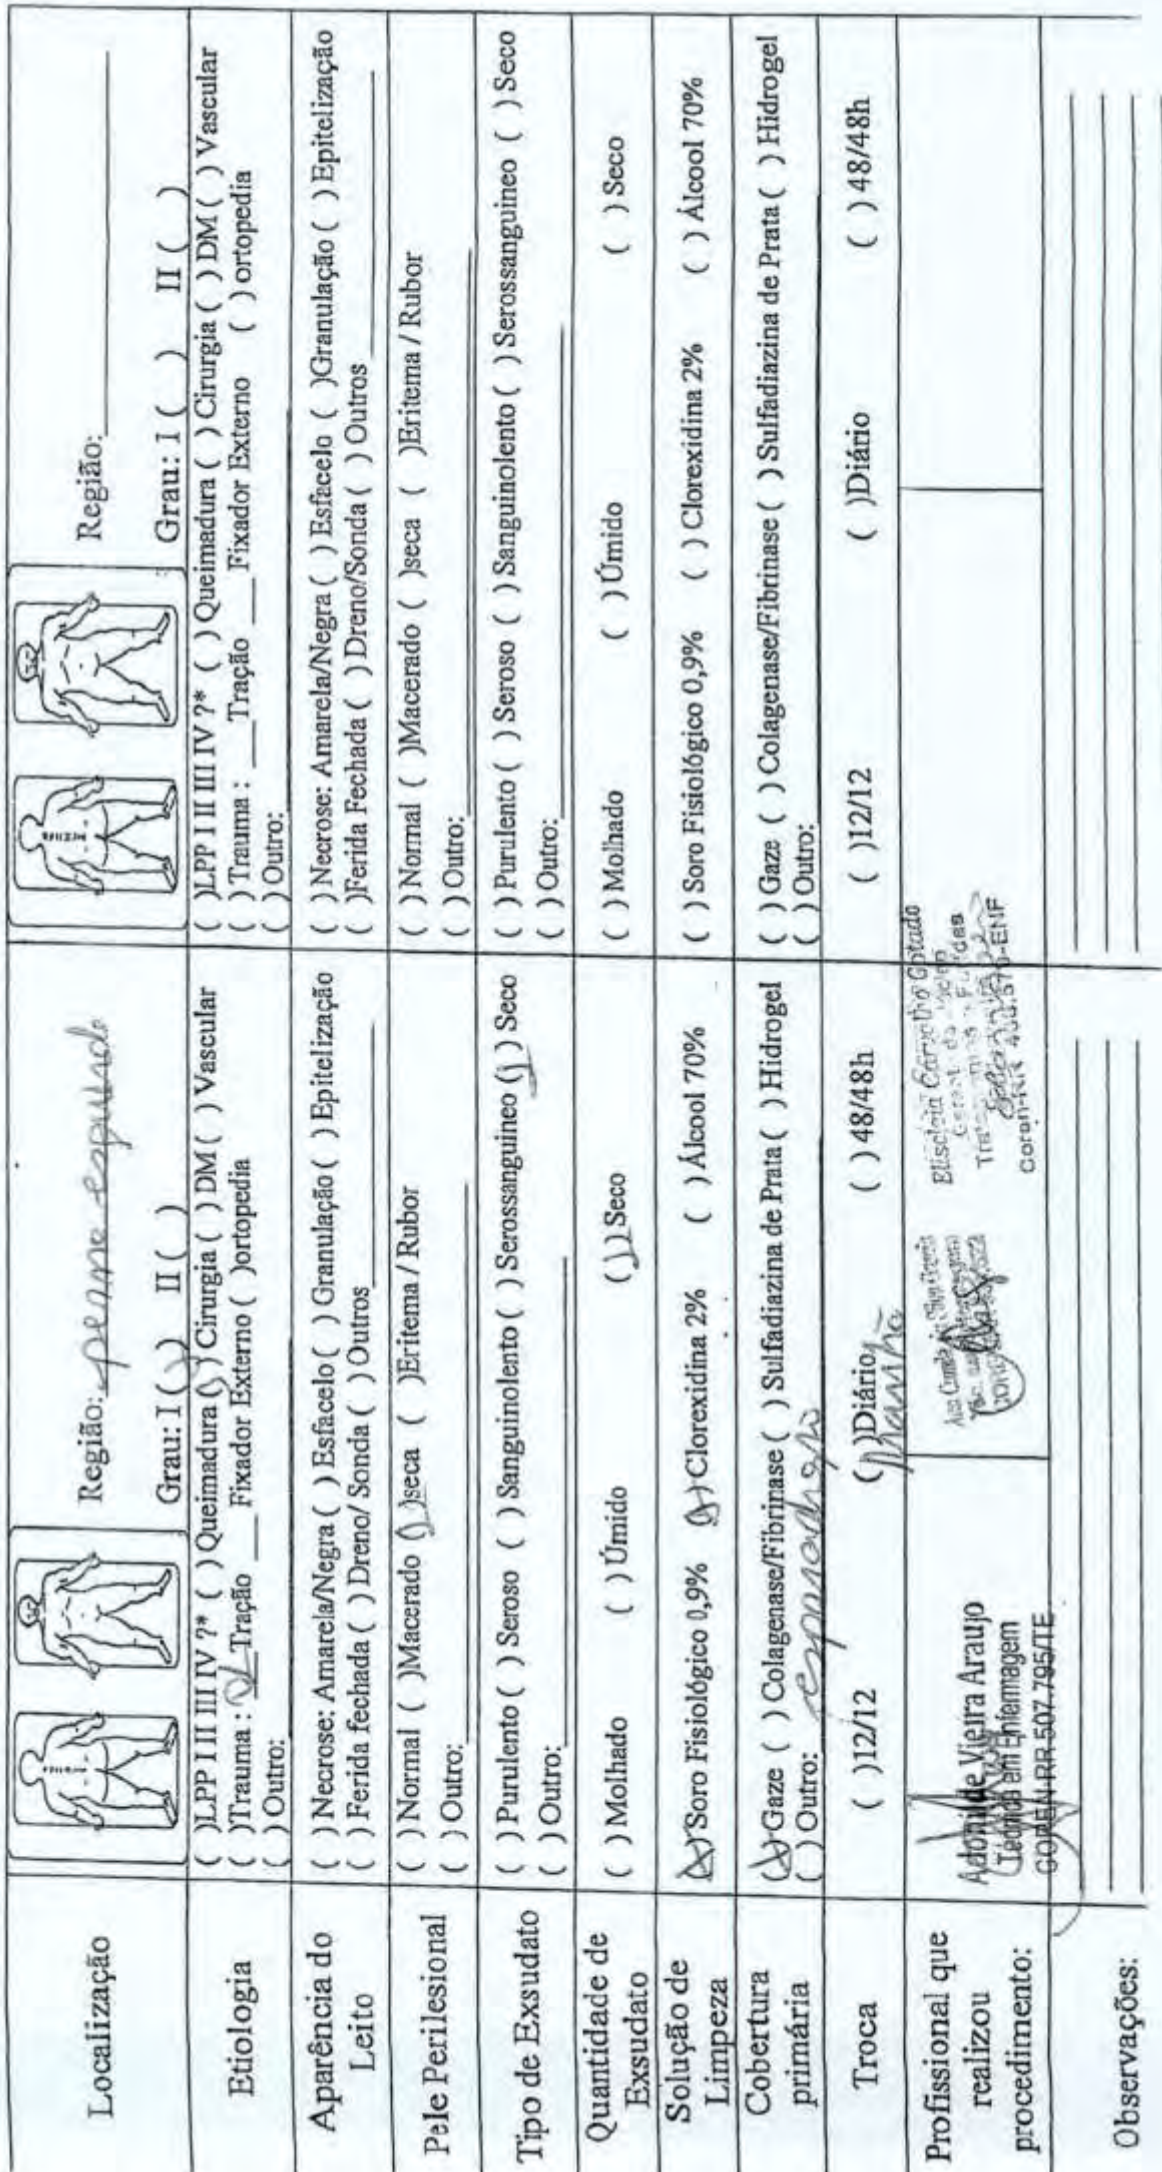 Localização
Região: perna esquerda
Grau: I ( ) II ( )
Região:
Grau: I ( ) II ( )
Etiologia
( )LPP I II III IV ?* ( ) Queimadura ( ) Cirurgia ( ) DM ( ) Vascular
( )Trauma : Tração ___Fixador Externo ( )ortopedia
( ) Outro:
( )LPP I II III IV ?* ( ) Queimadura ( ) Cirurgia ( ) DM ( ) Vascular
( ) Trauma : ___Tração ___Fixador Externo ( ) ortopedia
( ) Outro:
Aparência do
Leito
( ) Necrose: Amarela/Negra ( ) Esfacelo ( ) Granulação ( ) Epitelização
( ) Ferida fechada ( ) Dreno/ Sonda ( ) Outros
( ) Necrose: Amarela/Negra ( ) Esfacelo ( )Granulação ( ) Epitelização
( )Ferida Fechada ( ) Dreno/Sonda ( ) Outros
Pele Perilesional
( ) Normal ( )Macerado ( )seca ( )Eritema / Rubor
( ) Outro:
( ) Normal ( )Macerado ( )seca ( )Eritema / Rubor
( ) Outro:
Tipo de Exsudato
( ) Purulento ( ) Seroso ( ) Sanguinolento ( ) Serossanguineo ( ) Seco
( ) Outro:
( ) Purulento ( ) Seroso ( ) Sanguinolento ( ) Serossanguineo ( ) Seco
( ) Outro:
Quantidade de
Exsudato
( ) Molhado ( ) Úmido ( ) Seco
( ) Molhado ( ) Úmido ( ) Seco
Solução de
Limpeza
(X) Soro Fisiológico 0,9% (X) Clorexidina 2% ( ) Álcool 70%
( ) Soro Fisiológico 0,9% ( ) Clorexidina 2% ( ) Álcool 70%
Cobertura
primária
(X) Gaze ( ) Colagenase/Fibrinase ( ) Sulfadiazina de Prata ( ) Hidrogel
( ) Outro:
( ) Gaze ( ) Colagenase/Fibrinase ( ) Sulfadiazina de Prata ( ) Hidrogel
( ) Outro:
Troca
( )12/12 ( )Diário ( ) 48/48h
Manhã
( )12/12 ( )Diário ( ) 48/48h
Profissional que
realizou
procedimento:
Adonilde Vieira Araujo
Técnica em Enfermagem
COREN-RR 507.795/TE
Observações: